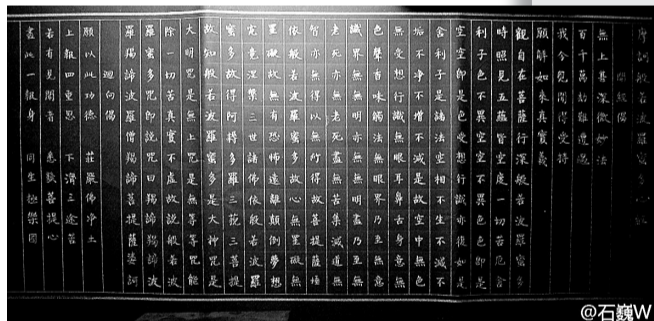 摩訶般若波羅蜜多心經
開經偈
無上甚深微妙法
百千萬劫難遭遇
我今見聞得受持
願解如來真實義
觀自在菩薩行深般若波羅蜜多
時照見五蘊皆空度一切苦厄舍
利子色不異空空不異色色即是
空空即是色受想行識亦復如是
舍利子是諸法空相不生不滅不
垢不淨不增不減是故空中無色
無受想行識無眼耳鼻舌身意無
色聲香味觸法無眼界乃至無意
識界無無明亦無無明盡乃至無
老死亦無老死盡無苦集滅道無
智亦無得以無所得故菩提薩埵
依般若波羅蜜多故心無罣礙無
罣礙故無有恐怖遠離顛倒夢想
究竟涅槃三世諸佛依般若波羅
蜜多故得阿耨多羅三藐三菩提
故知般若波羅蜜多是大神咒是
大明咒是無上咒是無等等咒能
除一切苦真實不虛故說般若波
羅蜜多咒即說咒曰羯諦羯諦波
羅羯諦波羅僧羯諦菩提薩婆訶
迴向偈
願以此功德 莊嚴佛淨土
上報四重恩 下濟三途苦
若有見聞者 悉發菩提心
盡此一報身 同生極樂國
@石巍W